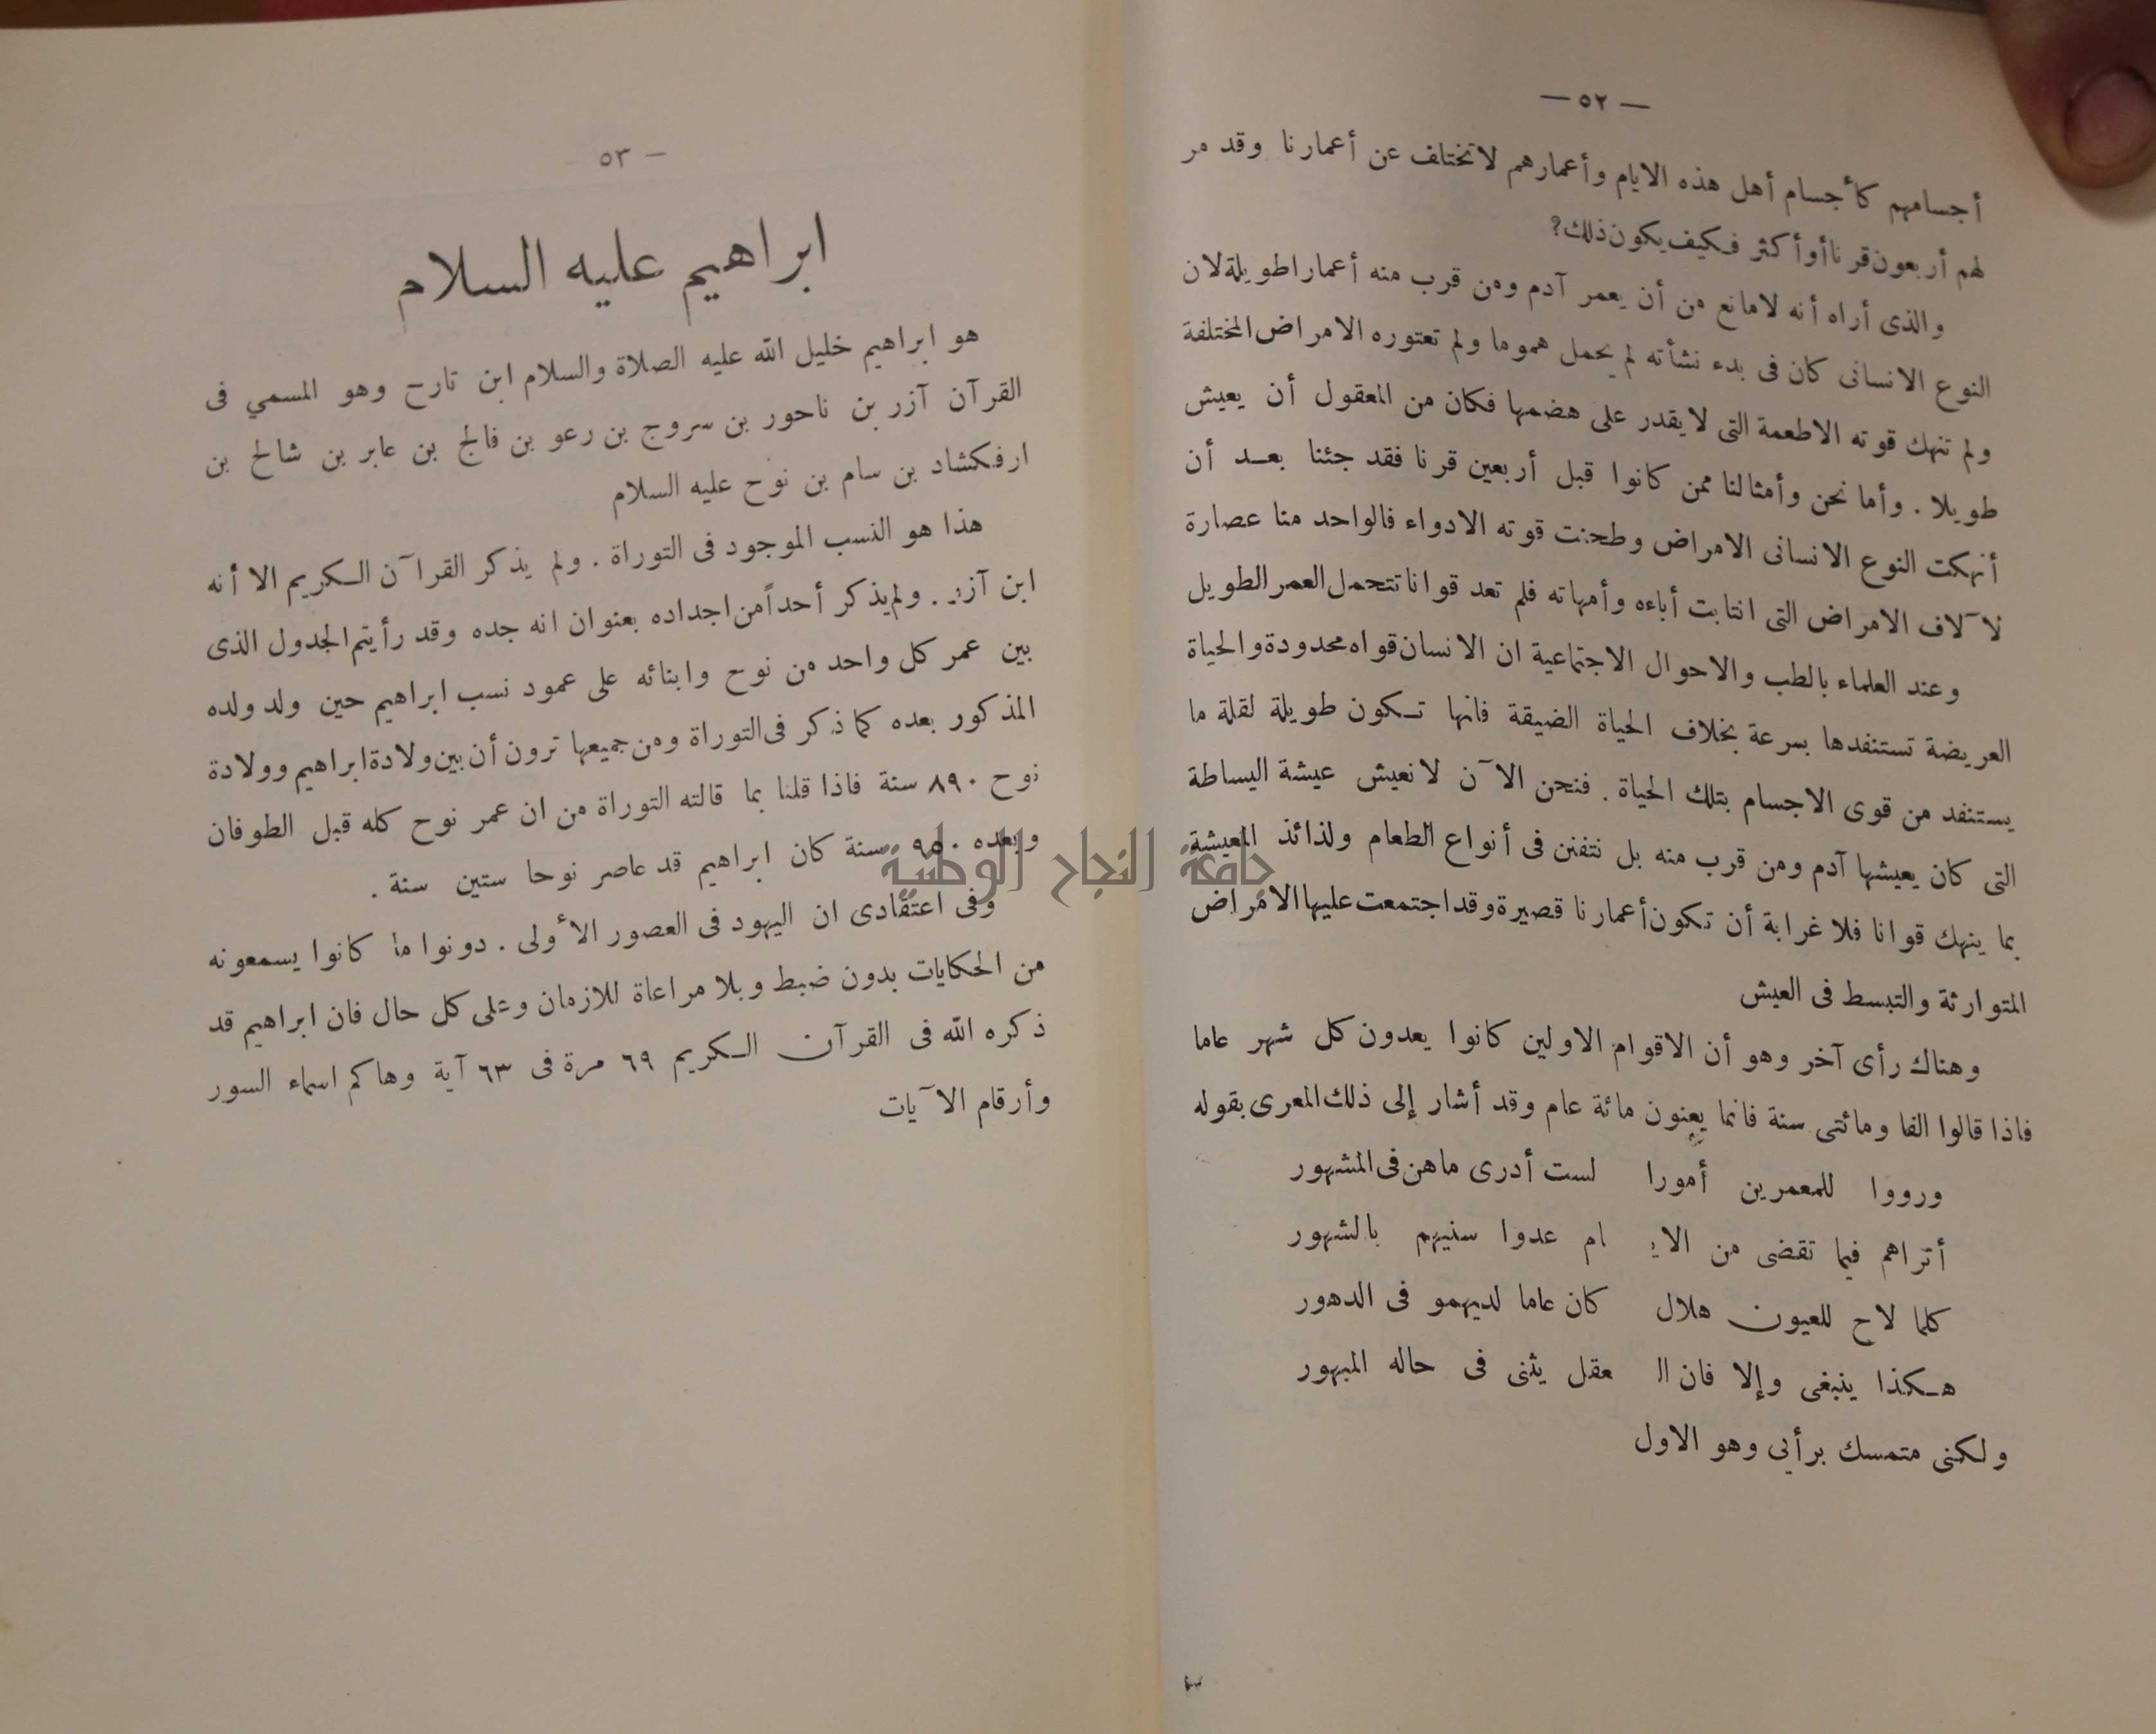 — ٥٢ —
أجسامهم كأجسام أهل هذه الايام وأعمارهم لاتختلف عن أعمارنا وقد مر
لهم أربعون قرنا أو أكثر فكيف يكون ذلك؟
والذى أراه أنه لامانع من أن يعمر آدم ومن قرب منه أعمارا طويلة لان
النوع الانسانى كان فى بدء نشأته لم يحمل هموما ولم تعتوره الامراض المختلفة
ولم تنهك قوته الاطعمة التى لايقدر على هضمها فكان من المعقول أن يعيش
طويلا . وأما نحن وأمثالنا ممن كانوا قبل أربعين قرنا فقد جئنا بعد أن
أنهكت النوع الانسانى الامراض وطحنت قوته الادواء فالواحد منا عصارة
لآلاف الامراض التى انتابت أباءه وأمهاته فلم تعد قوانا تتحمل العمر الطويل
وعند العلماء بالطب والاحوال الاجتماعية ان الانسان قواه محدودة والحياة
العريضة تستنفدها بسرعة بخلاف الحياة الضيقة فانها تكون طويلة لقلة ما
يستنفد من قوى الاجسام بتلك الحياة . فنحن الآن لانعيش عيشة البساطة
التى كان يعيشها آدم ومن قرب منه بل نتفنن فى أنواع الطعام ولذائذ المعيشة
بما ينهك قوانا فلا غرابة أن تكون أعمارنا قصيرة وقد اجتمعت عليها الامراض
المتوارثة والتبسط فى العيش
وهناك رأى آخر وهو أن الاقوام الاولين كانوا يعدون كل شهر عاما
فاذا قالوا الفا ومائتى سنة فانما يعنون مائة عام وقد أشار إلى ذلك المعرى بقوله
ورووا للمعمرين أمورا لست أدرى ماهن فى المشهور
أتراهم فيما تقضى من الايـ ام عدوا سنيهم بالشهور
كلما لاح للعيون هلال كان عاما لديهمو فى الدهور
هكذا ينبغى وإلا فان الـ عقل يثنى فى حاله المبهور
ولكنى متمسك برأيى وهو الاول
— ٥٣ -
ابراهيم عليه السلام
هو ابراهيم خليل الله عليه الصلاة والسلام ابن تارح وهو المسمي فى
القرآن آزر بن ناحور بن سروج بن رعو بن فالج بن عابر بن شالح بن
ارفكشاد بن سام بن نوح عليه السلام
هذا هو النسب الموجود فى التوراة . ولم يذكر القرآن الكريم الا أنه
ابن آزر . ولم يذكر أحداً من اجداده بعنوان انه جده وقد رأيتم الجدول الذى
بين عمر كل واحد من نوح وابنائه على عمود نسب ابراهيم حين ولد ولده
المذكور بعده كما ذكر فى التوراة ومن جميعها ترون أن بين ولادة ابراهيم وولادة
نوح ٨٩٠ سنة فاذا قلنا بما قالته التوراة من ان عمر نوح كله قبل الطوفان
وبعده ٩٥٠ سنة كان ابراهيم قد عاصر نوحا ستين سنة .
وفى اعتقادى ان اليهود فى العصور الأولى . دونوا ما كانوا يسمعونه
من الحكايات بدون ضبط وبلا مراعاة للازمان وعلى كل حال فان ابراهيم قد
ذكره الله فى القرآن الكريم ٦٩ مرة فى ٦٣ آية وهاكم اسماء السور
وأرقام الآيات
جامعة النجاح الوطنية